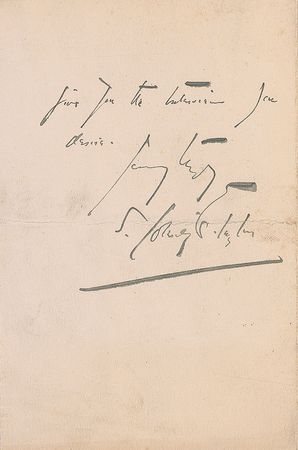 give you the interview you
desire.
S. Coleridge-Taylor